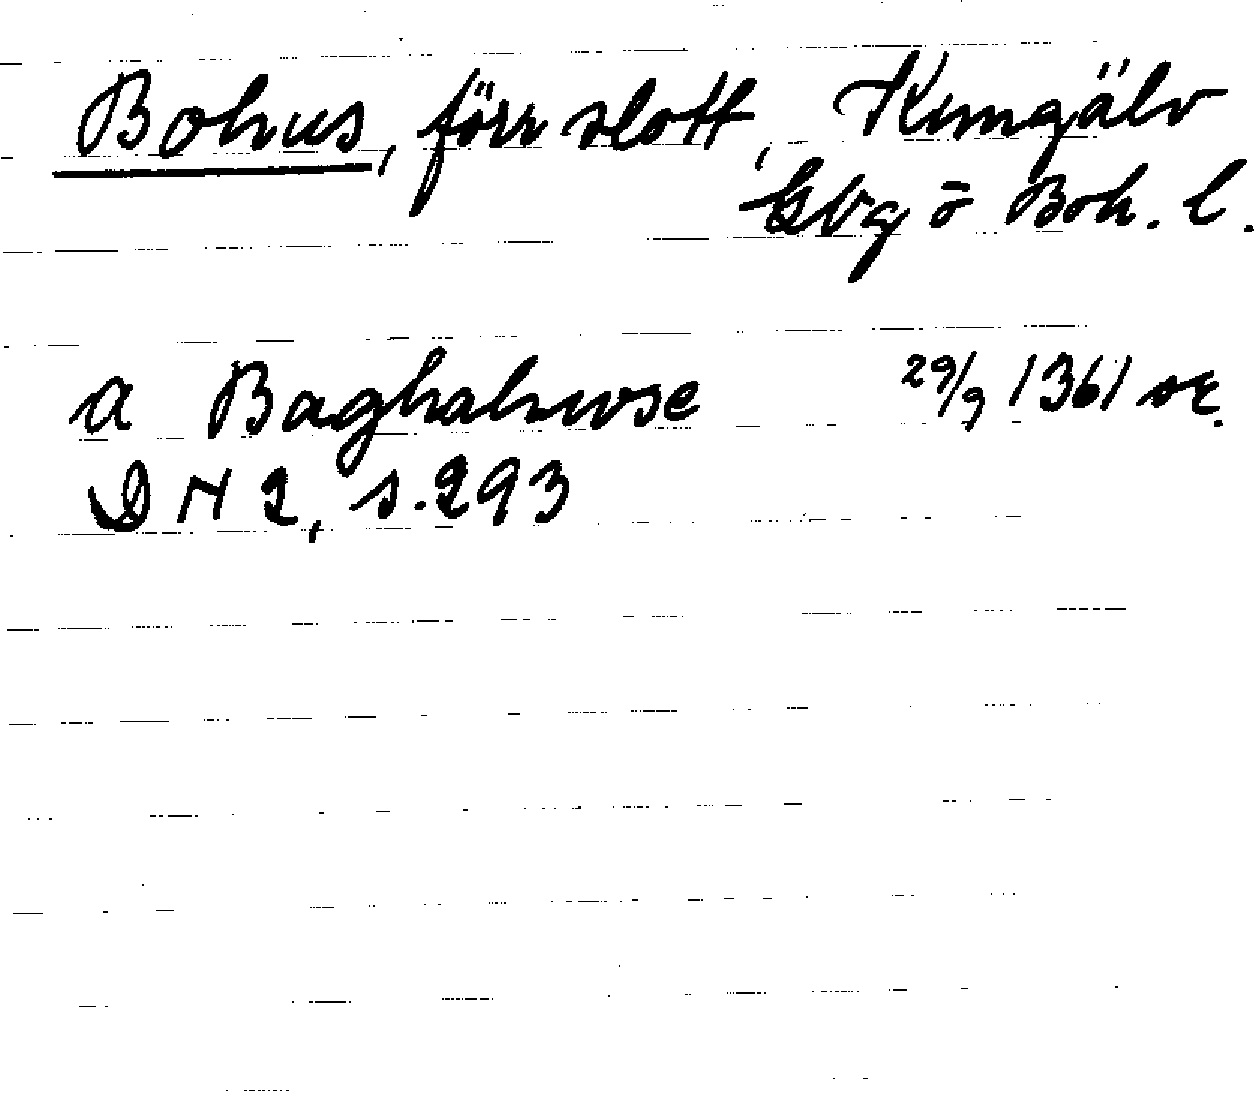 Bohus, förr slott, Kungälv
Gbg o Boh. l.
a Baghahwse 29/9 1361 or.
DN 2, s. 293